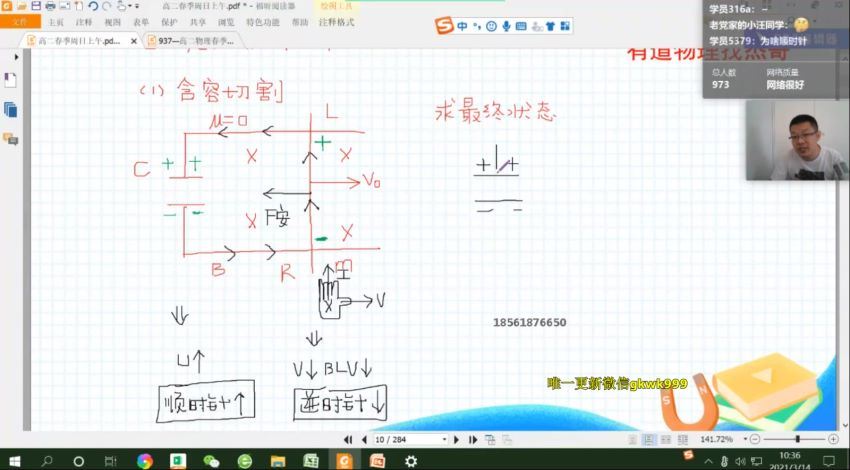 高二春季周日上午.pdf * - 福昕阅读器
绘图工具
文件
主页
注释
视图
表单
保护
共享
浏览
特色功能
帮助
注释格式
高二春季周日上午.pd...
937—高二物理春季...
学员316a: －
老党家的小汪同学:
学员5379: 为啥顺时针
总人数
网络质量
973
网络很好
中
有道物理找杰哥
(1) 含容+切割
求最终状态
μ=0
L
C
+ +
- -
X X
X X
+
-
V0
F安
B
R
m
I
V
+ +
U↑
V↓ BLV↓
顺时针↑
逆时针↓
18561876650
唯一更新微信gkwk999
10 / 284
141.72%
10:36
2021/3/14